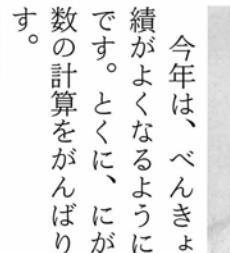 今年は、べんきょ
績がよくなるように
です。とくに、にが
数の計算をがんばり
す。